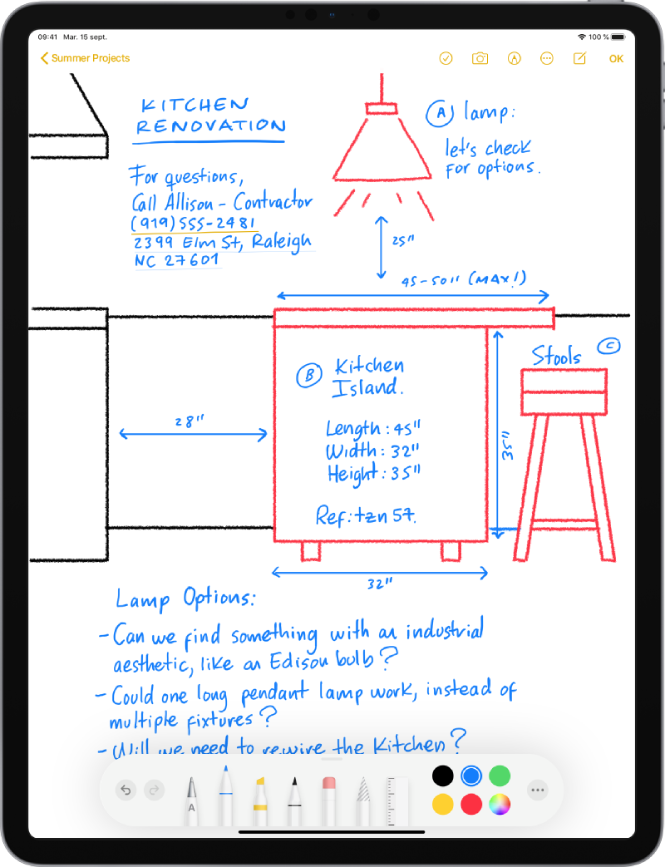 09:41 Mar. 15 sept.
100 %
Summer Projects
OK
KITCHEN
RENOVATION
For questions,
Call Allison - Contractor
(919) 555-2481
2399 Elm St, Raleigh
NC 27601
A lamp:
let's check
for options.
25"
45-50" (MAX!)
B Kitchen
Island.
Length: 45"
Width: 32"
Height: 35"
Ref: tzn 57.
28"
35"
Stools C
32"
Lamp Options:
- Can we find something with an industrial
aesthetic, like an Edison bulb?
- Could one long pendant lamp work, instead of
multiple fixtures?
- Will we need to rewire the Kitchen?
A